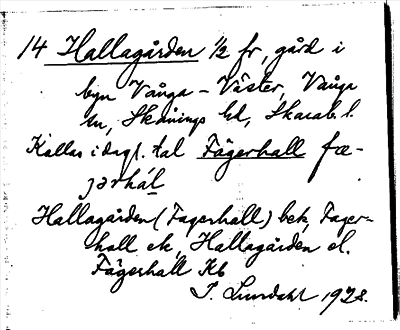 14 Hallagården 1/2 fr, gård i
byn Vånga - Väster, Vånga
sn, Skånings hd, Skarab. l.
Kallas i dagl. tal Fägerhall fæ-
jərhál
Hallagården (Fagerhall) bek, Fager-
hall ek, Hallagården el.
Fägerhall Kb
Lundahl 1928.